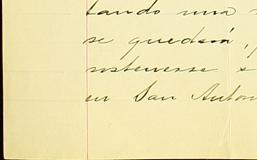 tando una
se quedará,
sostenerse
en San Anton